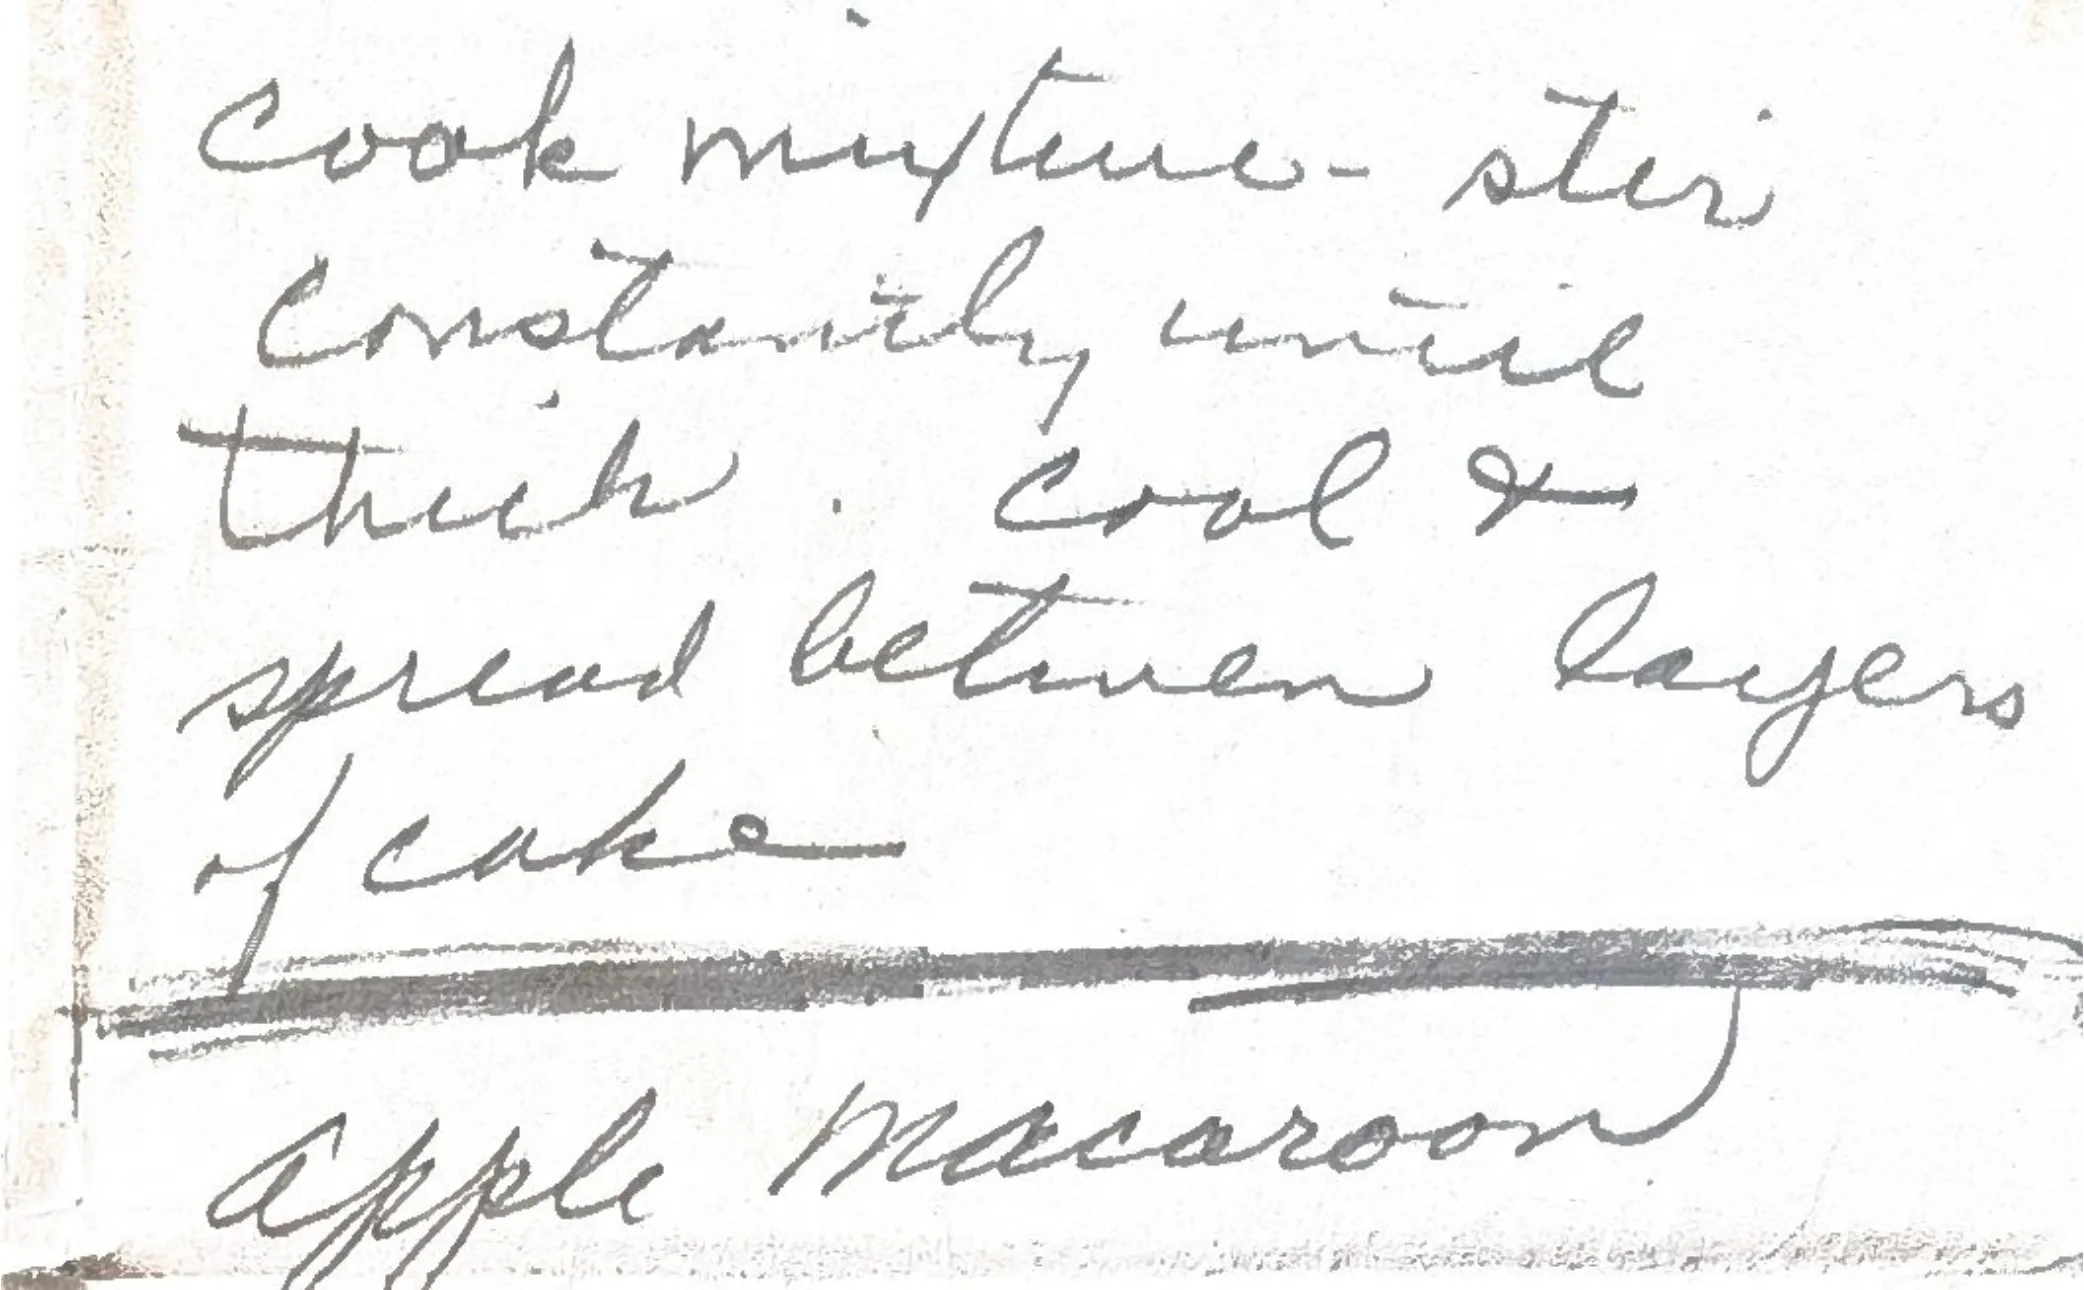 cook mixture - stir
constantly until
thick. cool &
spread between layers
of cake
apple Macaroon